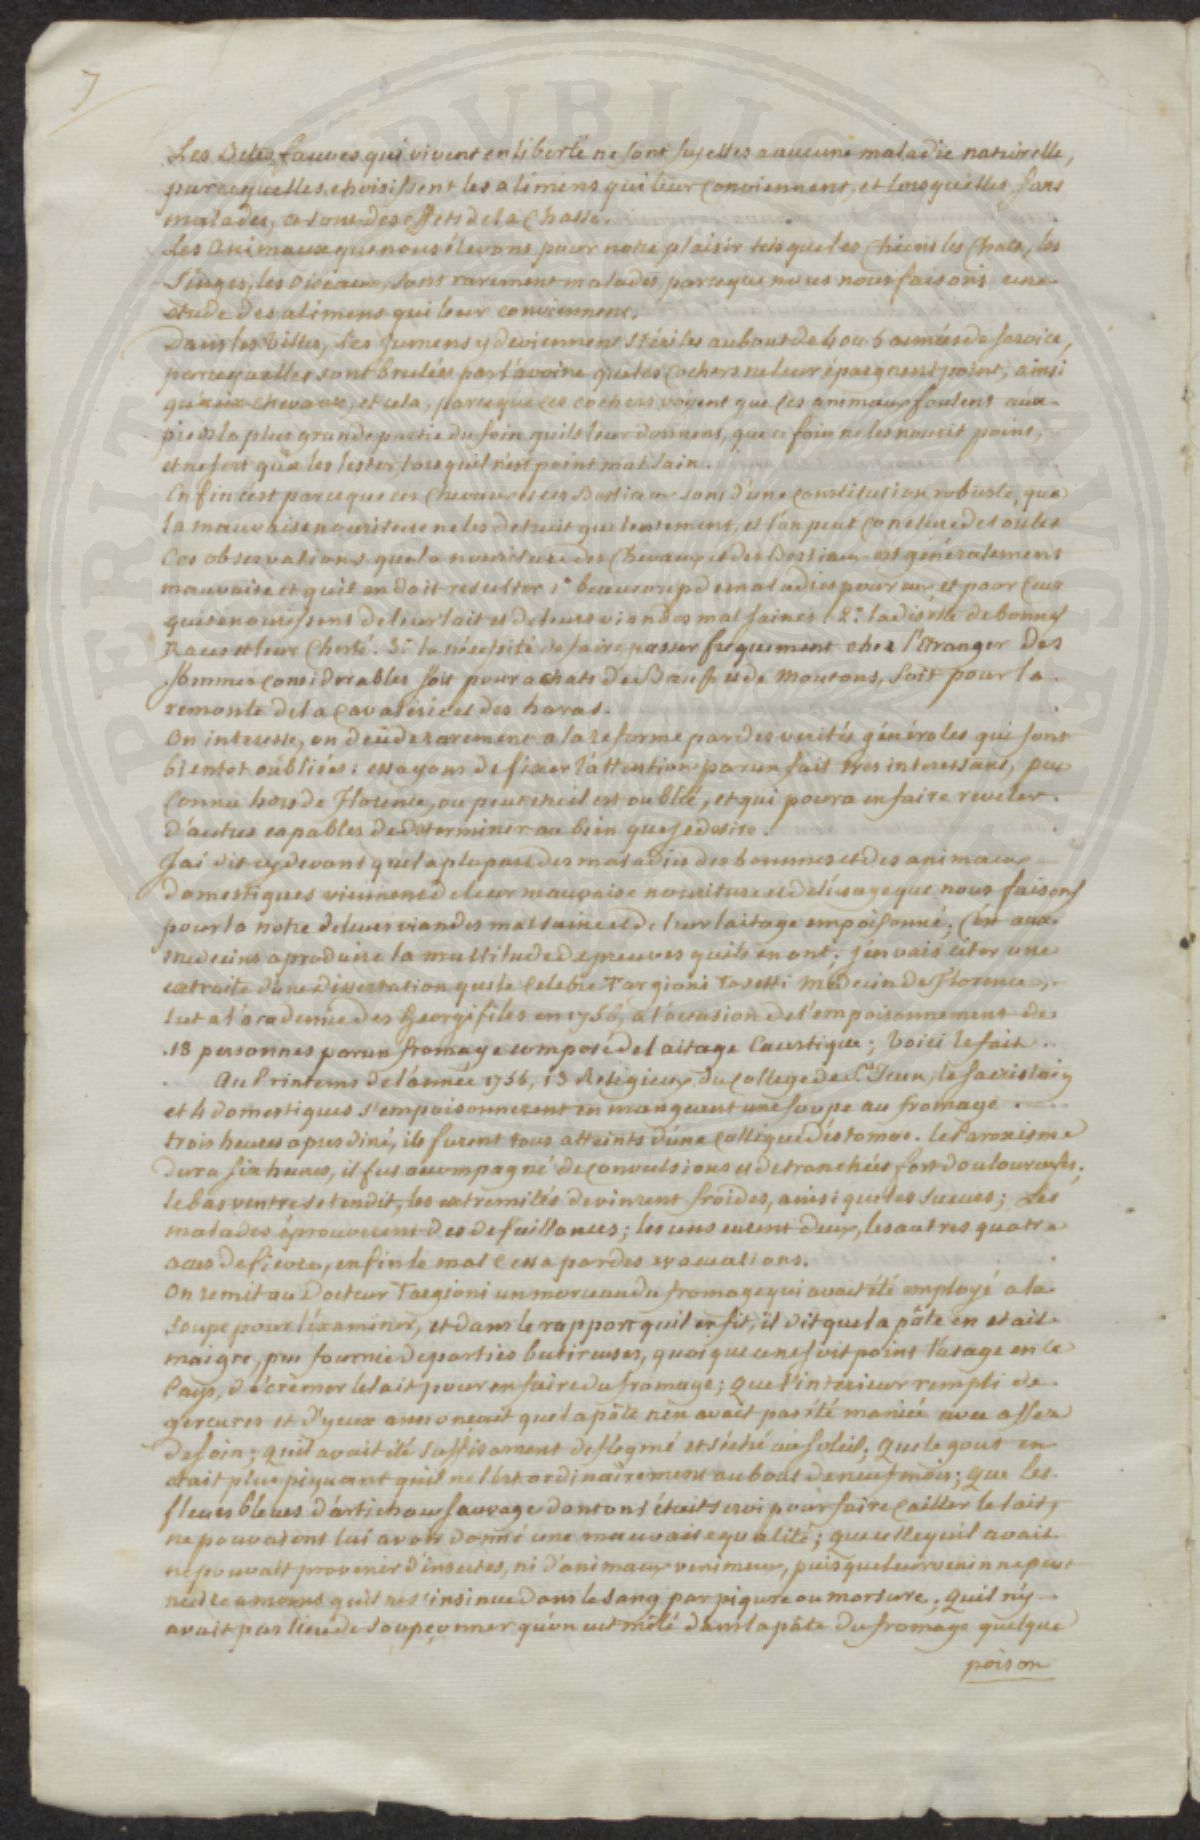 7
Les Betes fauves qui vivent en liberté ne sont sujettes a aucune maladie naturelle,
parcequelles choisissent les alimens qui leur conviennent, et lorsquelles sont
malades, ce sont des effets de la Chasse.
Les Animaux que nous élevons pour notre plaisir tels que les Chiens les Chats, les
Singes, les Oiseaux, sont rarement malades parceque nous nous faisons une
etude des alimens qui leur conviennent.
Dans les Villes, Les Jumens y deviennent stériles au bout de 4 ou 5 années de service,
parcequelles sont brulées par l'avoine que les Cochers ne leur épargnent point, ainsi
qu'aux chevaux, et cela, parceque ces cochers voyent que ces animaux foulent aux
pieds la plus grande partie du foin quils leur donnent, que ce foin ne les nourit point,
et ne sert qu'a les lester lorsquil n'est point mal sain.
Enfin c'est parceque ces Chevaux et ces Bestiaux sont d'une constitution robuste, que
la mauvaise nouriture ne les detruit que lentement, et l'on peut conclure de toutes
Ces observations que la nouriture des Chevaux et des Bestiaux est généralement
mauvaise et quil en doit resulter 1° beaucoup de maladies pour eux et pour ceux
qui se nourissent de leur lait et de leurs viandes mal saines. 2° la disette de bonnes
Races et leur Cherté. 3° la nécessité de faire passer frequemment chez l'Etranger Des
sommes considerables soit pour achats de Bœufs et de Moutons, soit pour la
remonte de la Cavalerie et des haras.
On interesse, on decide rarement a la reforme par des verités générales qui sont
bientot oubliées: essayons de fixer l'attention par un fait tres interessant, peu
Connu hors de Florence, ou peutetre il est oublié, et qui poura en faire reveler
d'autres capables de determiner au bien que je desire.
J'ai dit cydevant que la plupart des maladies des hommes et des animaux
domestiques viennent de leur mauvaise nouriture et de l'usage que nous faisons
pour la notre de leurs viandes mal saines et de leur laitage empoisonné. C'est aux
medecins a produire la multitude de preuves quils en ont. j'en vais citer une
extraite d'une Dissertation que le Celebre Targioni Tozetti Medecin de Florence,
lut a l'academie des Georgifiles en 1756, a l'occasion de l'empoisonnement de
18 personnes par un fromage composé de laitage Caustique; Voici le fait.
Au Printems de l'année 1756, 13 Religieux du College de St. Jean, le sacristain
et 4 domestiques s'empoisonnerent en mangeant une soupe au fromage.
trois heures apres diné, ils furent tous atteints d'une Collique d'éstomac. Le Paroxisme
dura six heures, il fut accompagné de Convulsions et de tranchées fort douloureuses,
le bas ventre se tendit, les extremités devinrent froides, ainsi que les sueurs; Les
malades éprouverent des defaillances; les uns eurent deux, les autres quatre
acces de fievre, enfin le mal cessa par des evacuations.
On remit au Docteur Targioni un morceau du fromage qui avait été employé a la
soupe pour l'éxaminer, et dans le rapport quil en fit, il dit que la pâte en etait
maigre, peu fournie de parties butireuses, quoique ce ne soit point l'usage en ce
Pays, d'écrémer le lait pour en faire du fromage; Que l'interieur rempli de
gercures et d'yeux annoncait que la pâte n'en avait pas été maniée avec assez
de soin; qu'il avait été suffisament deflegmé et séché au soleil; Que le gout en
etait plus piquant quil ne l'est ordinairement au bout de neuf mois; Que les
fleurs bleues d'artichau sauvage dont on s'était servi pour faire Cailler le lait,
ne pouvaient lui avoir donné une mauvaise qualité; que celle quil avait
ne pouvait provenir d'insectes, ni d'animaux venimeux, puisque leur venin ne peut
nuire a moins quil ne s'insinue dans le sang par piqure ou morsure, Quil n'y
avait pas lieu de soupçonner qu'on eut mêlé dans la pâte du fromage quelque
poison